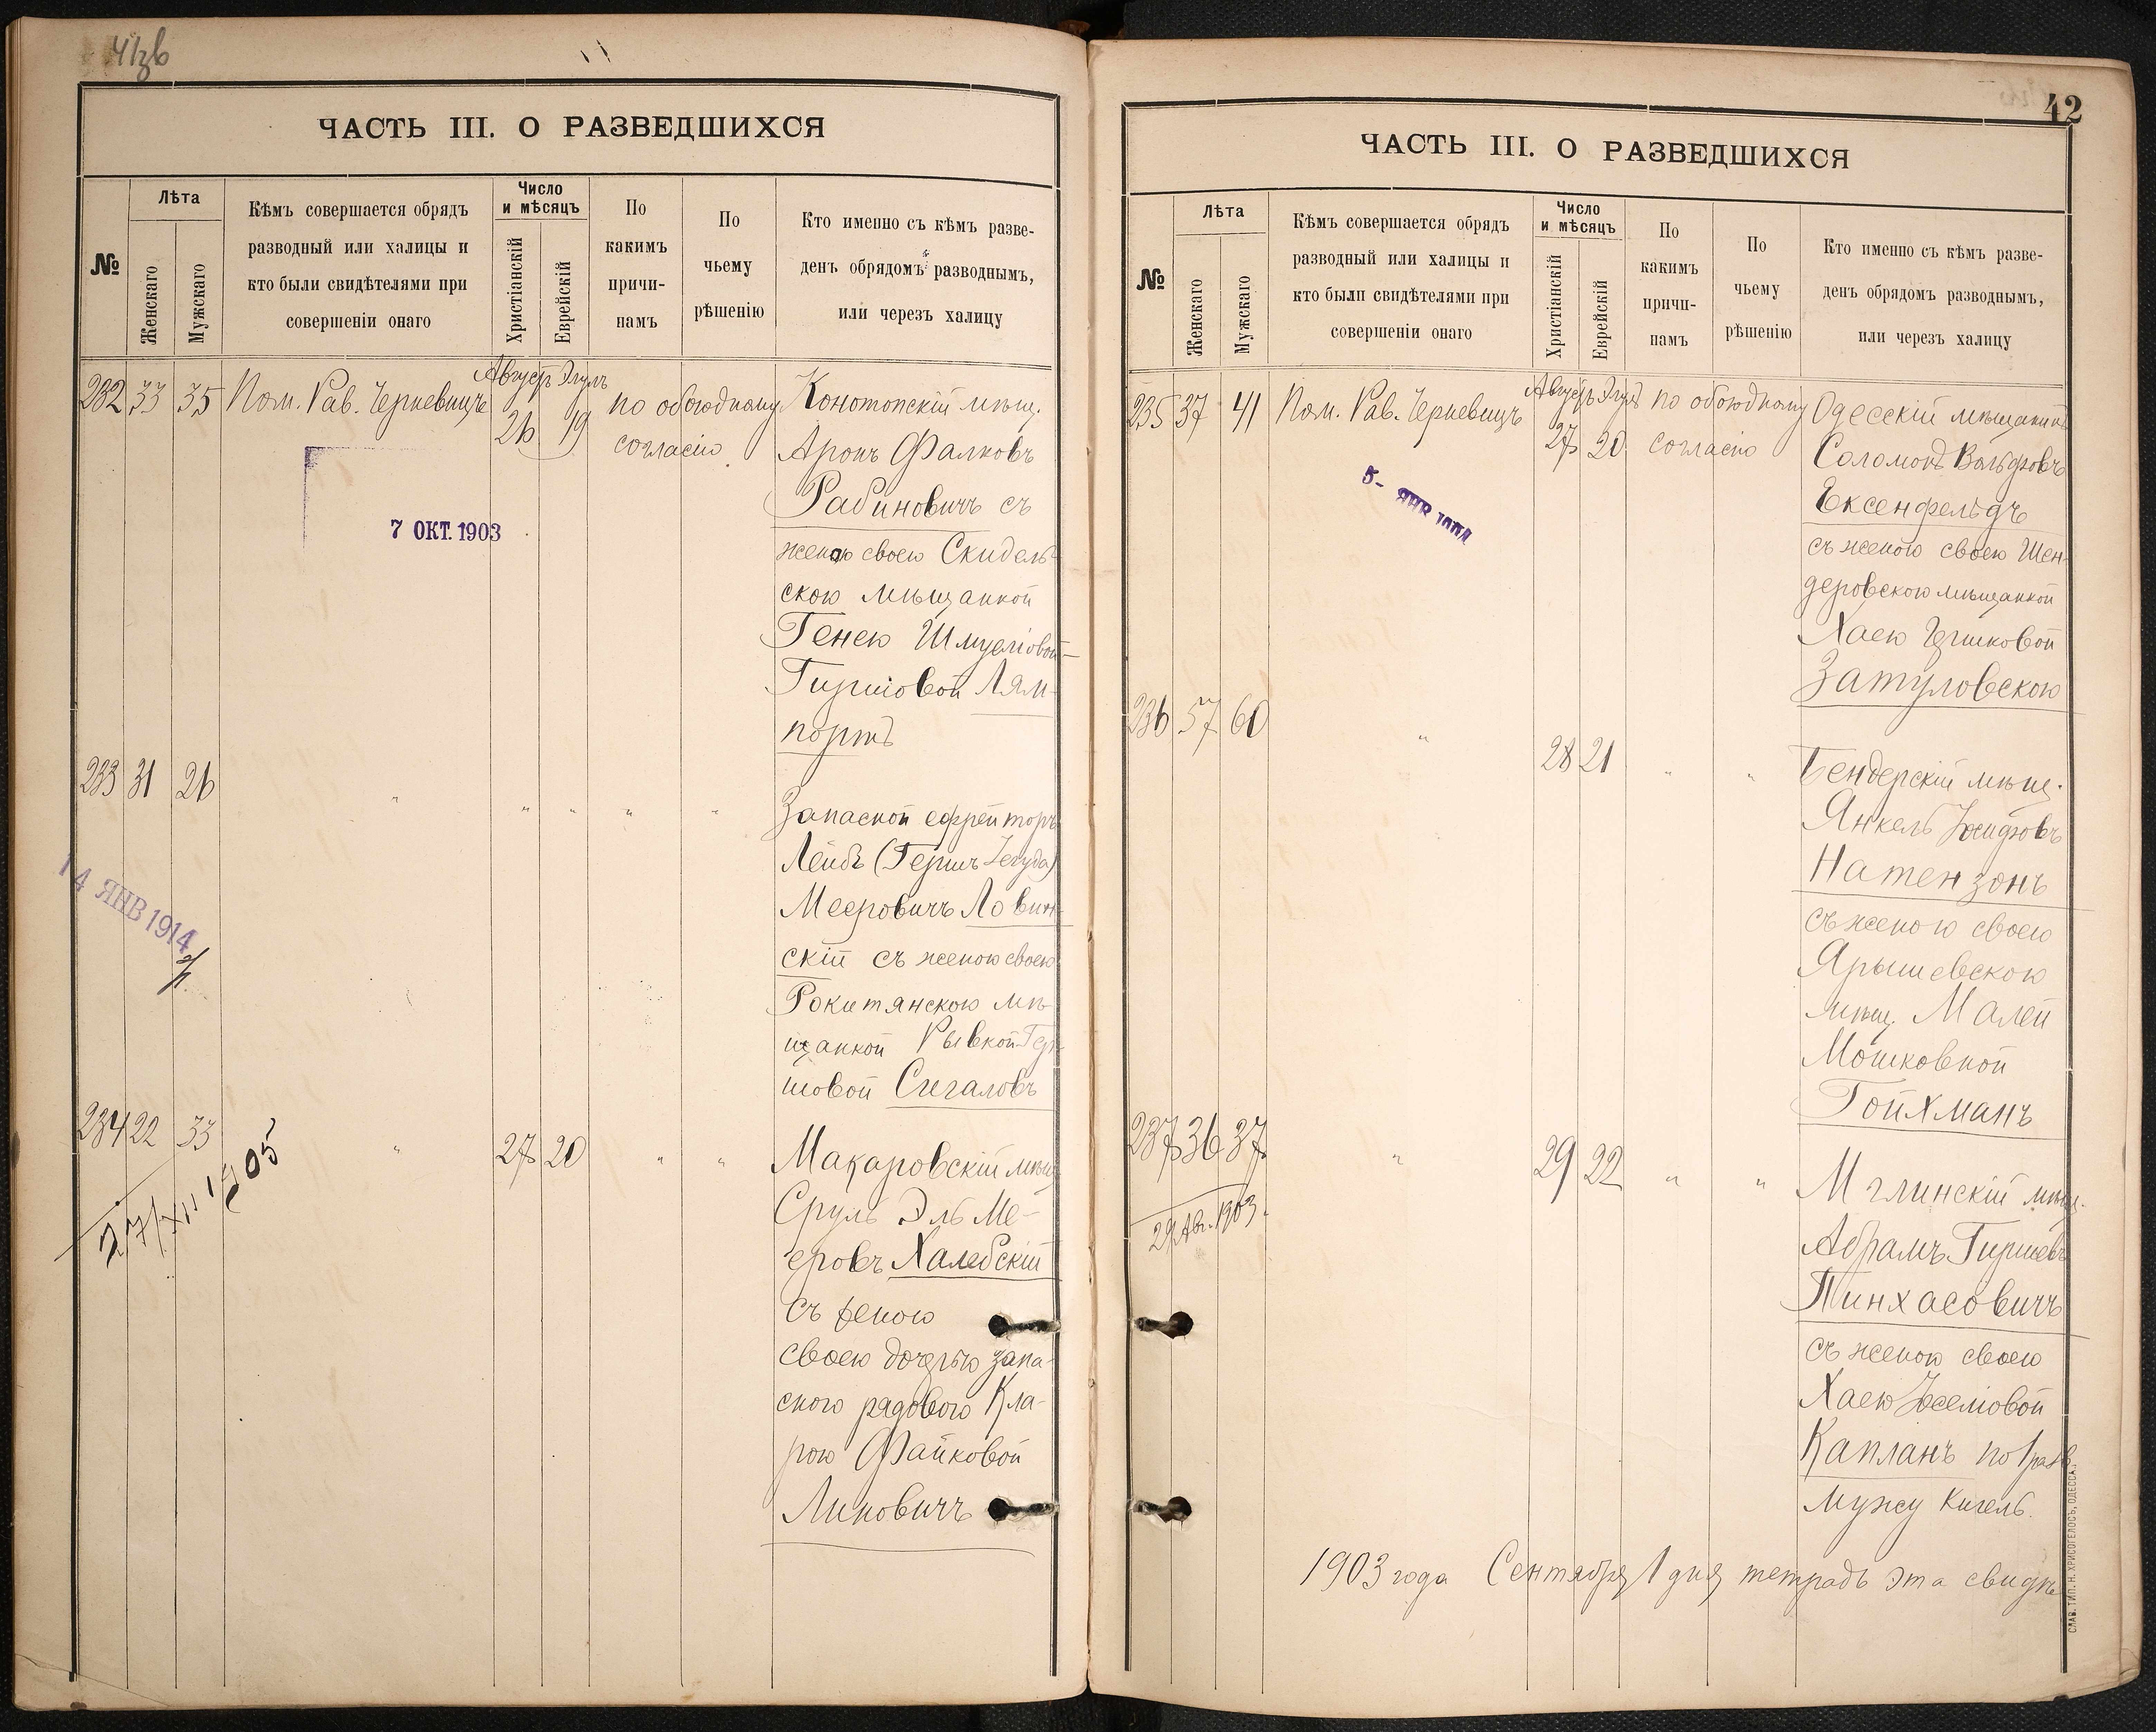 41 зв
ЧАСТЬ III. О РАЗВЕДШИХСЯ
№
Лѣта
Женскаго
Мужскаго
Кѣмъ совершается обрядъ
разводный или халицы и
кто были свидѣтелями при
совершеніи онаго
Число
и мѣсяцъ
Христіанскій
Еврейскій
По
какимъ
причи-
памъ
По
чьему
рѣшенію
Кто именно съ кѣмъ разве-
денъ обрядомъ разводнымъ,
или черезъ халицу
232 33 35 Пом. Рав. Черневицъ Августъ 26 Элулъ 19 по обоюдному
согласію
Конотопскій мѣщ.
Аронъ Фалковъ
Рабиновичъ съ
женою своею Скидель-
скою мѣщанкой
Генею Шмуеліовой-
Гиршовой Лям-
портъ
7 ОКТ. 1903
233 31 26 " " " " "
Запасной ефрейторъ
Лейбъ (Гершъ Іегуда)
Мееровичъ Ловин-
скій съ женою своею
Рокитянскою мѣ-
щанкой Рывкой Гер-
шовой Сигаловъ
14 ЯНВ 1914
234 22 33 " 27 20 " "
27/XII 1905
Макаровскій мѣщ.
Сруль Эль Ме-
еровъ Халебскій
съ женою
своею дочерью запа-
сного рядового Кла-
рою Файковой
Линовичъ
42
ЧАСТЬ III. О РАЗВЕДШИХСЯ
№
Лѣта
Женскаго
Мужскаго
Кѣмъ совершается обрядъ
разводный или халицы и
кто были свидѣтелями при
совершеніи онаго
Число
и мѣсяцъ
Христіанскій
Еврейскій
По
какимъ
причи-
памъ
По
чьему
рѣшенію
Кто именно съ кѣмъ разве-
денъ обрядомъ разводнымъ,
или черезъ халицу
235 37 41 Пом. Рав. Черневицъ Августъ 27 Элулъ 20 по обоюдному
согласію
Одесскій мѣщанинъ
Соломонъ Вольфовъ
Ексенфельдъ
съ женою своею Шен-
деровскою мѣщанкой
Хаею Гершковой
Затуловскою
5- ЯНВ
236 57 60 " 28 21 " "
Бендерскій мѣщ.
Янкель
Натензонъ
съ женою своею
Ярышевскою
мѣщ. Малей
Мошковной
Гойхманъ
237 36 37 " 29 22 " "
29 Авг. 1903.
Мглинскій мѣщ.
Абрамъ Гиршевъ
Пинхасовичъ
съ женою своею
Хаею Іоселіовой
Капланъ по 1
мужу Кигель.
1903 года Сентября 1 дня тетрадь эта свидѣ
СЛАВ. ТИП. Н. ХРИСОГЕЛОСЪ, ОДЕССА.